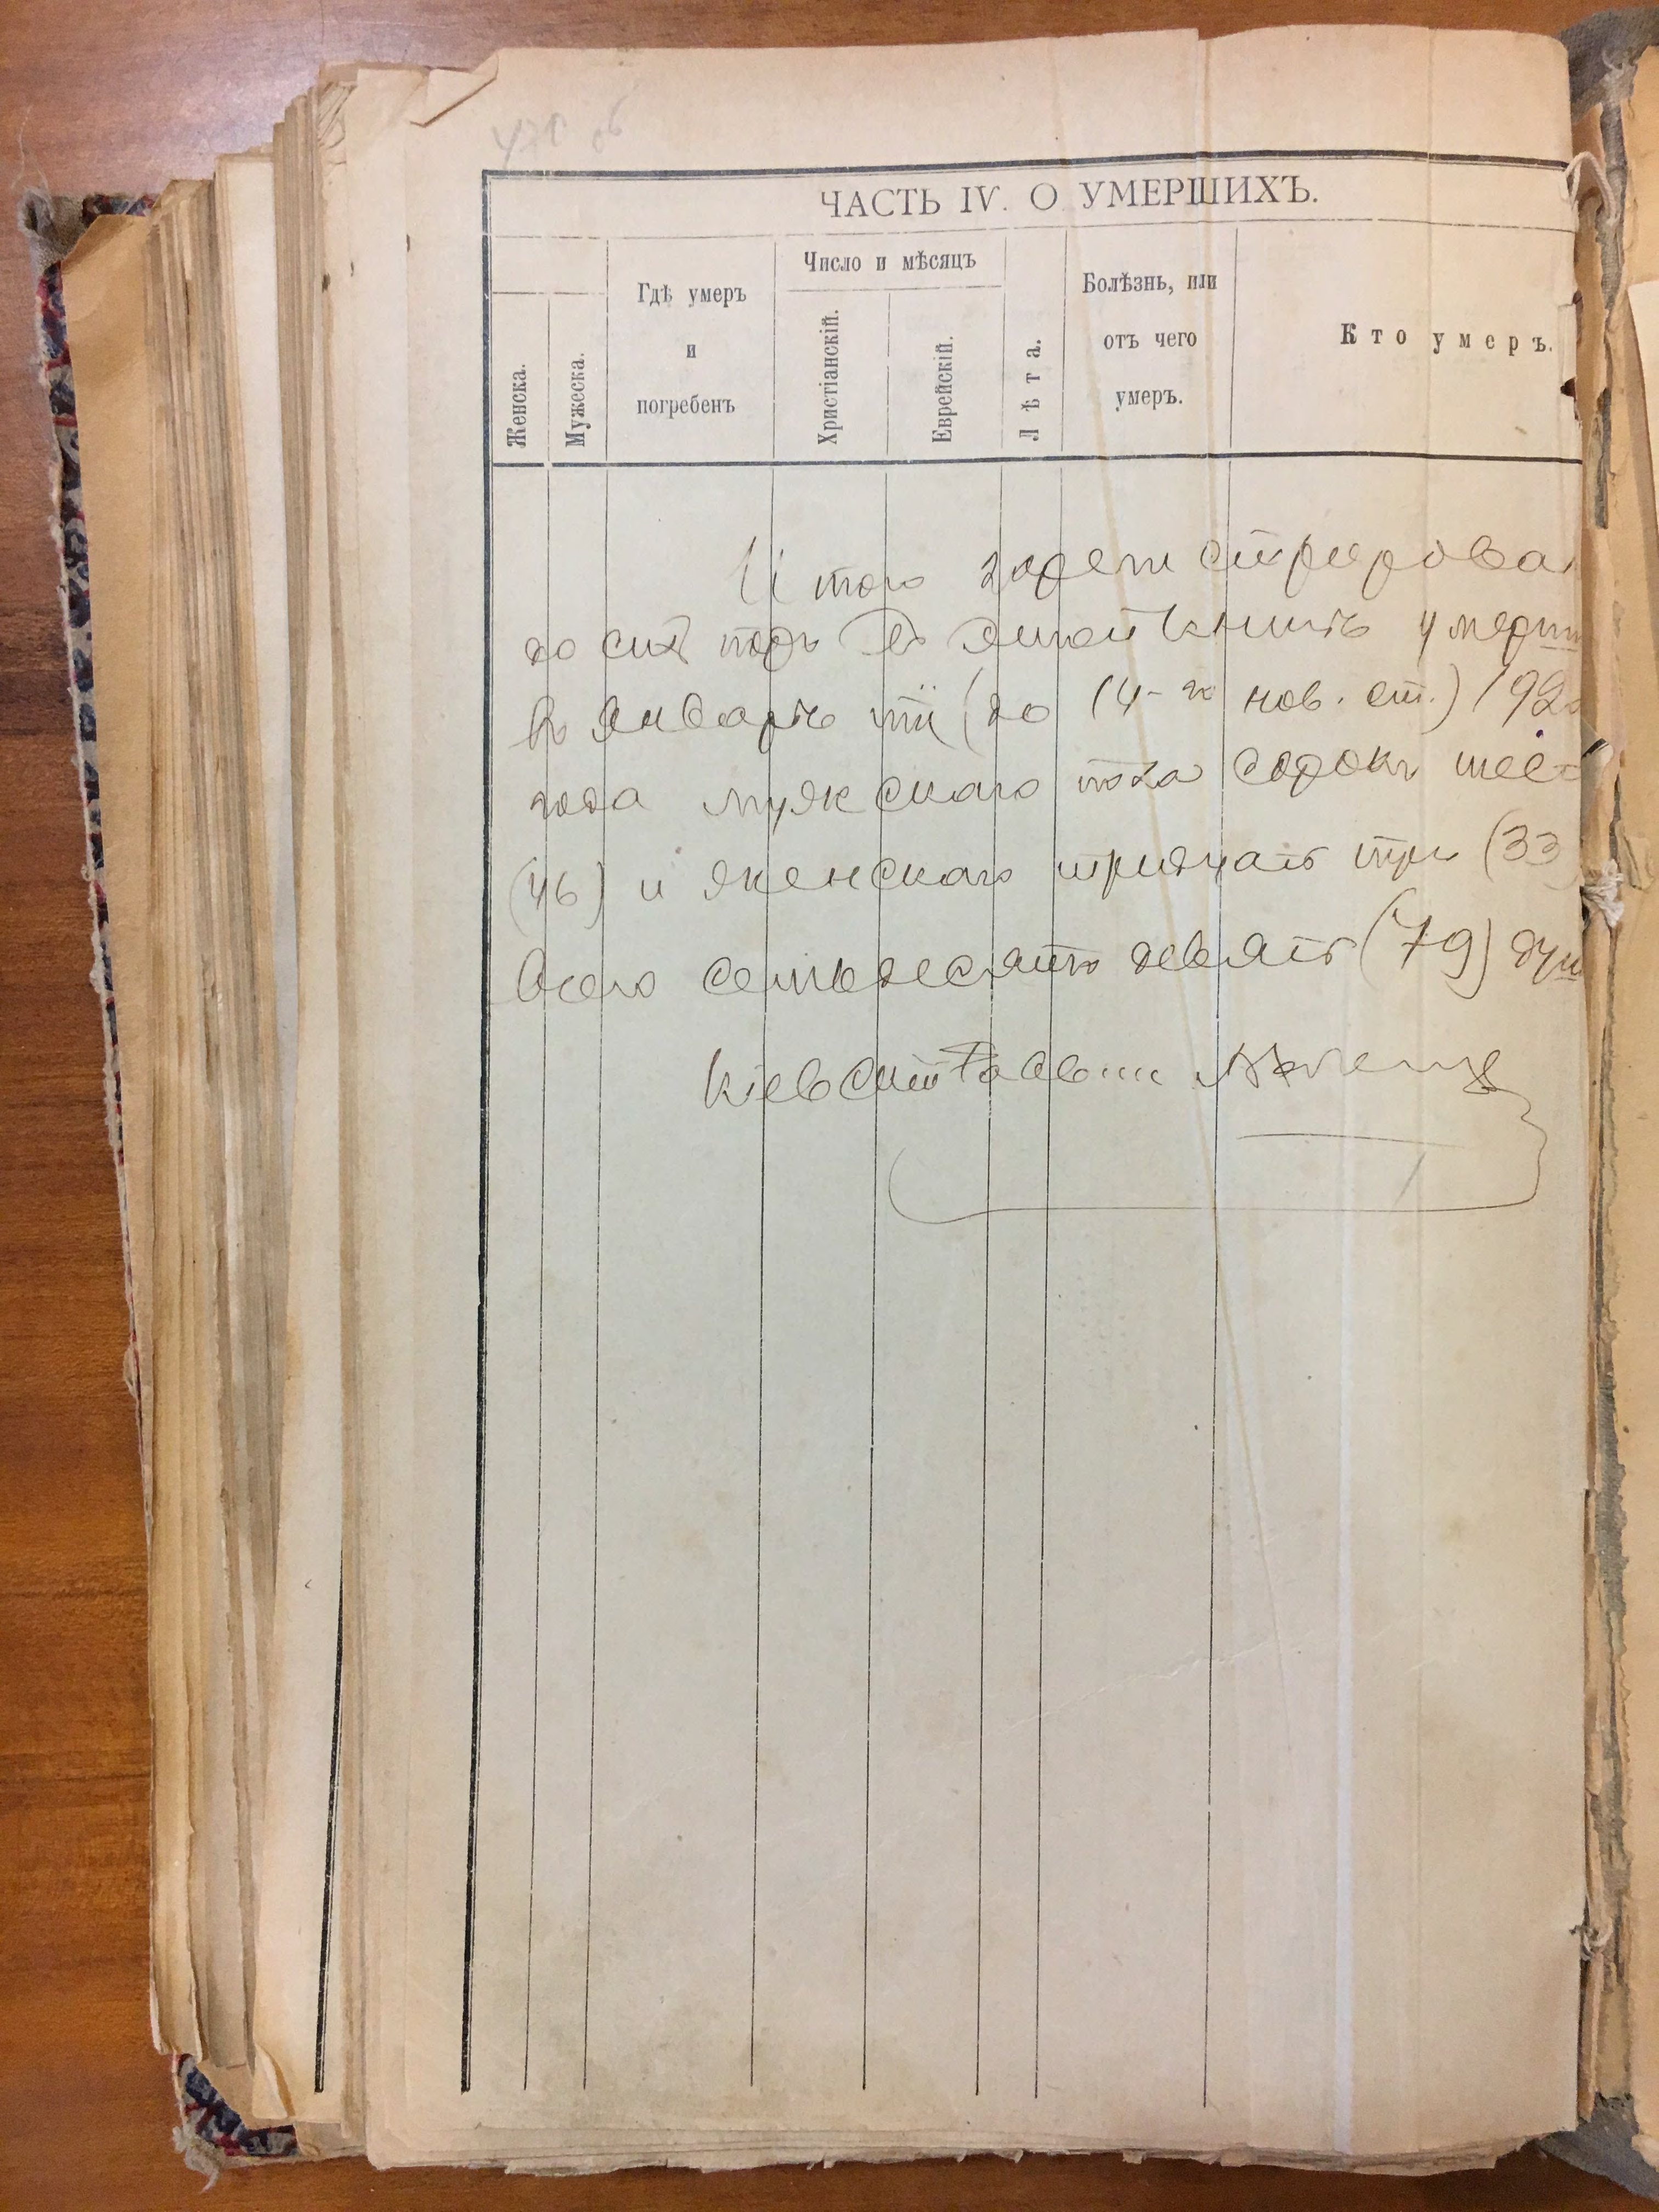 ЧАСТЬ IV. О УМЕРШИХЪ.
Женска.
Мужеска.
Гдѣ умеръ
и
погребенъ
Число и мѣсяцъ
Христіанскій.
Еврейскій.
Лѣта.
Болѣзнь, или
отъ чего
умеръ.
Кто умеръ.
Итого зарегистрирова
до сихъ поръ въ этой книгѣ умерш
въ Январѣ (до 14-го нов. ст.) 192
года мужскаго пола сорокъ шес
(46) и женскаго тридцать три (33
Всего семьдесятъ девять (79) душ
Кіевскій